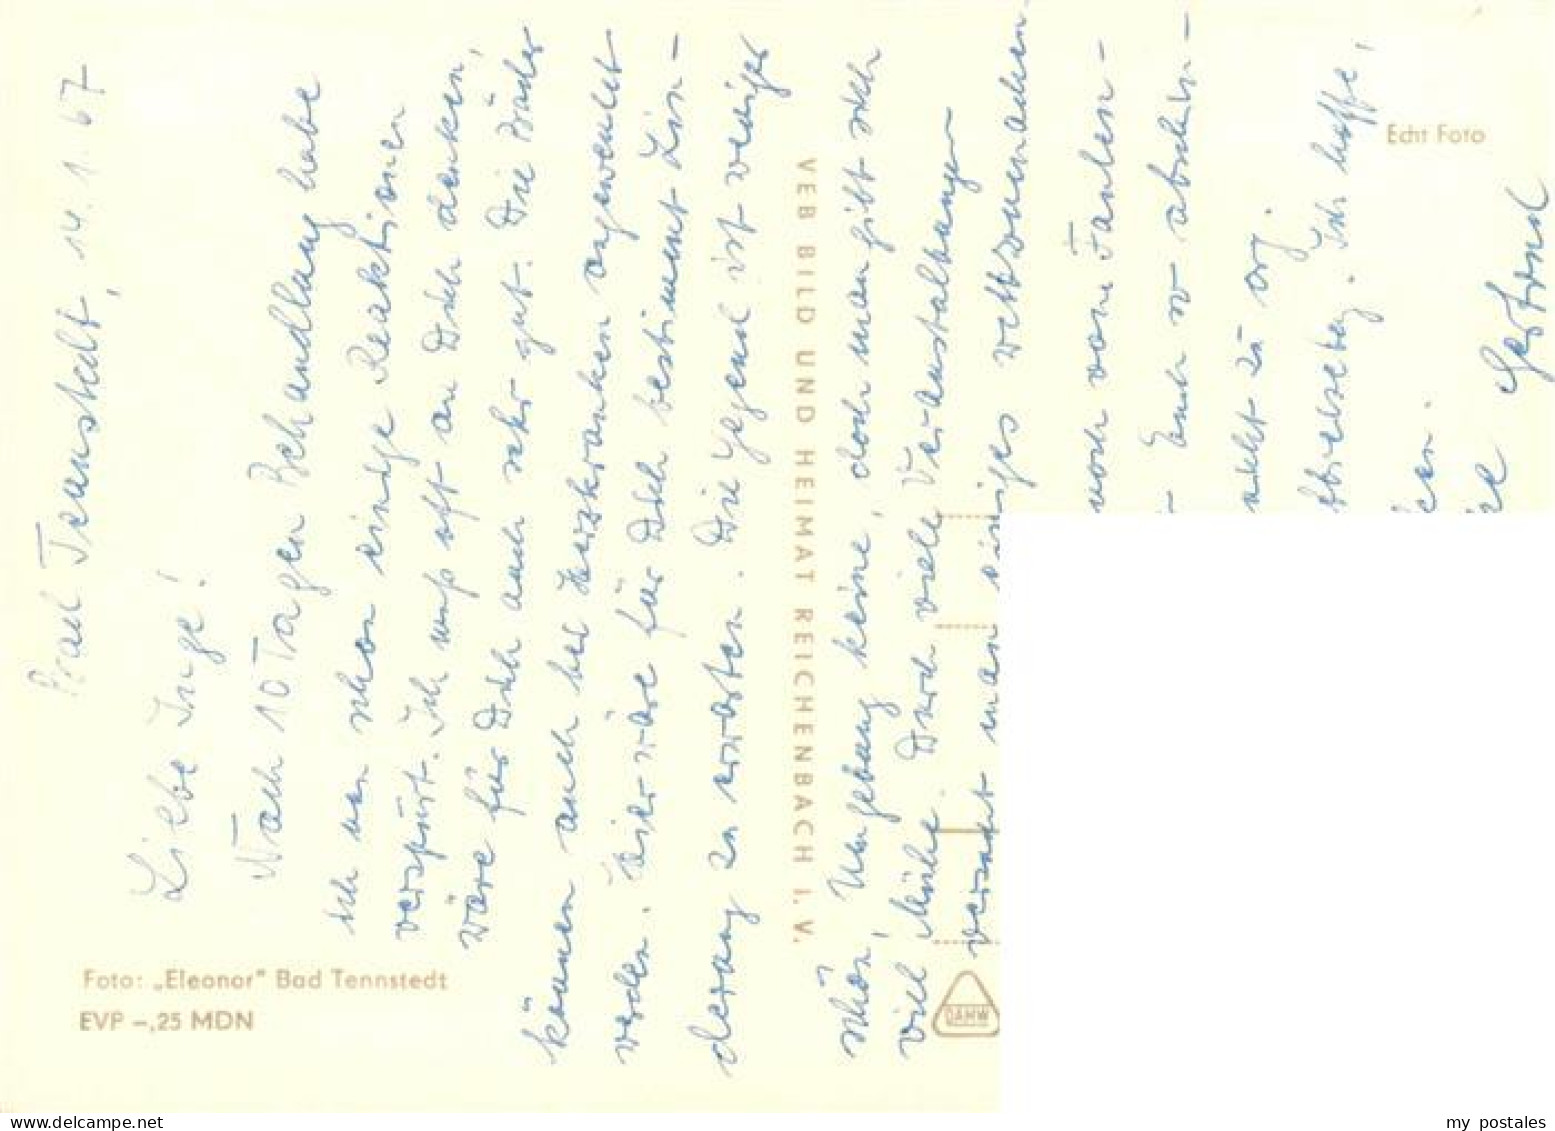 Bad Tennstedt, 14. 1. 67
Liebe Inge!
Nach 10 Tagen Behandlung habe
ich nun schon einige Reaktionen
verspürt. Ich muß oft an Dich denken,
wäre für Dich auch sehr gut. Die Bäder
können auch bei Herzkranken angewendet
werden. Hier wäre für Dich bestimmt Lin-
derung zu erwarten. Die Gegend ist weniger
schön, Umgebung keine, doch man gibt sich
viel Mühe. Durch viele Veranstaltungen
versucht man einiges wettzumachen.
noch vom Tanten-
Euch so abschin-
nicht zu arg.
Ich hoffe,
Gertrud
Foto: „Eleonor" Bad Tennstedt
EVP –,25 MDN
VEB BILD UND HEIMAT REICHENBACH I. V.
Echt Foto
DAHW
my postales
https://www.delcampe.net